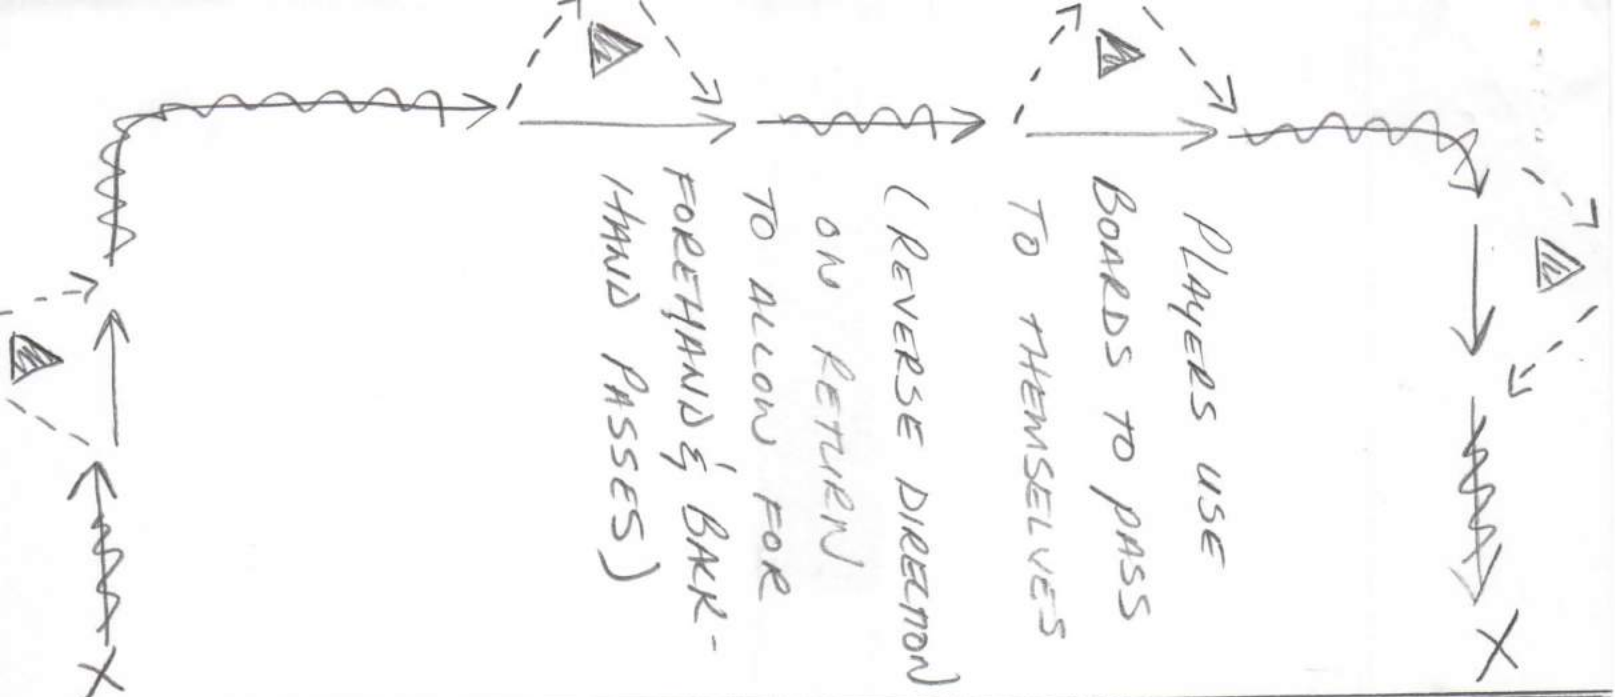 PLAYERS USE
BOARDS TO PASS
TO THEMSELVES
(REVERSE DIRECTION
ON RETURN
TO ALLOW FOR
FOREHAND & BACK-
HAND PASSES)
X
X